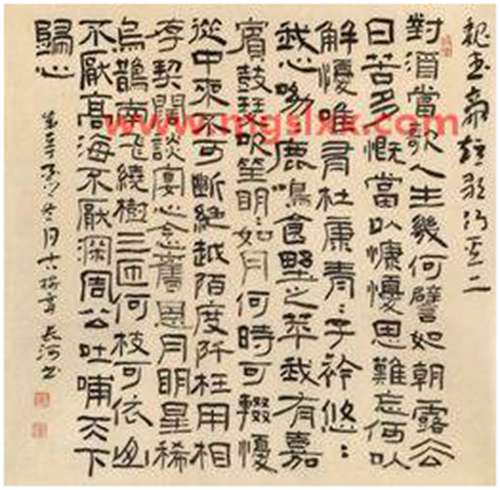 魏武帝短歌行其二
對酒當歌人生幾何譬如朝露去
日苦多慨當以慷憂思難忘何以
解憂唯有杜康青:子衿悠:
我心呦:鹿鳴食野之苹我有嘉
賓鼓瑟吹笙明:如月何時可輟憂
從中來不可斷絕越陌度阡枉用相
存契闊談宴心念舊恩月明星稀
烏鵲南飛繞樹三匝何枝可依山
不厭高海不厭深周公吐哺天下
歸心
www.mgslxx.com